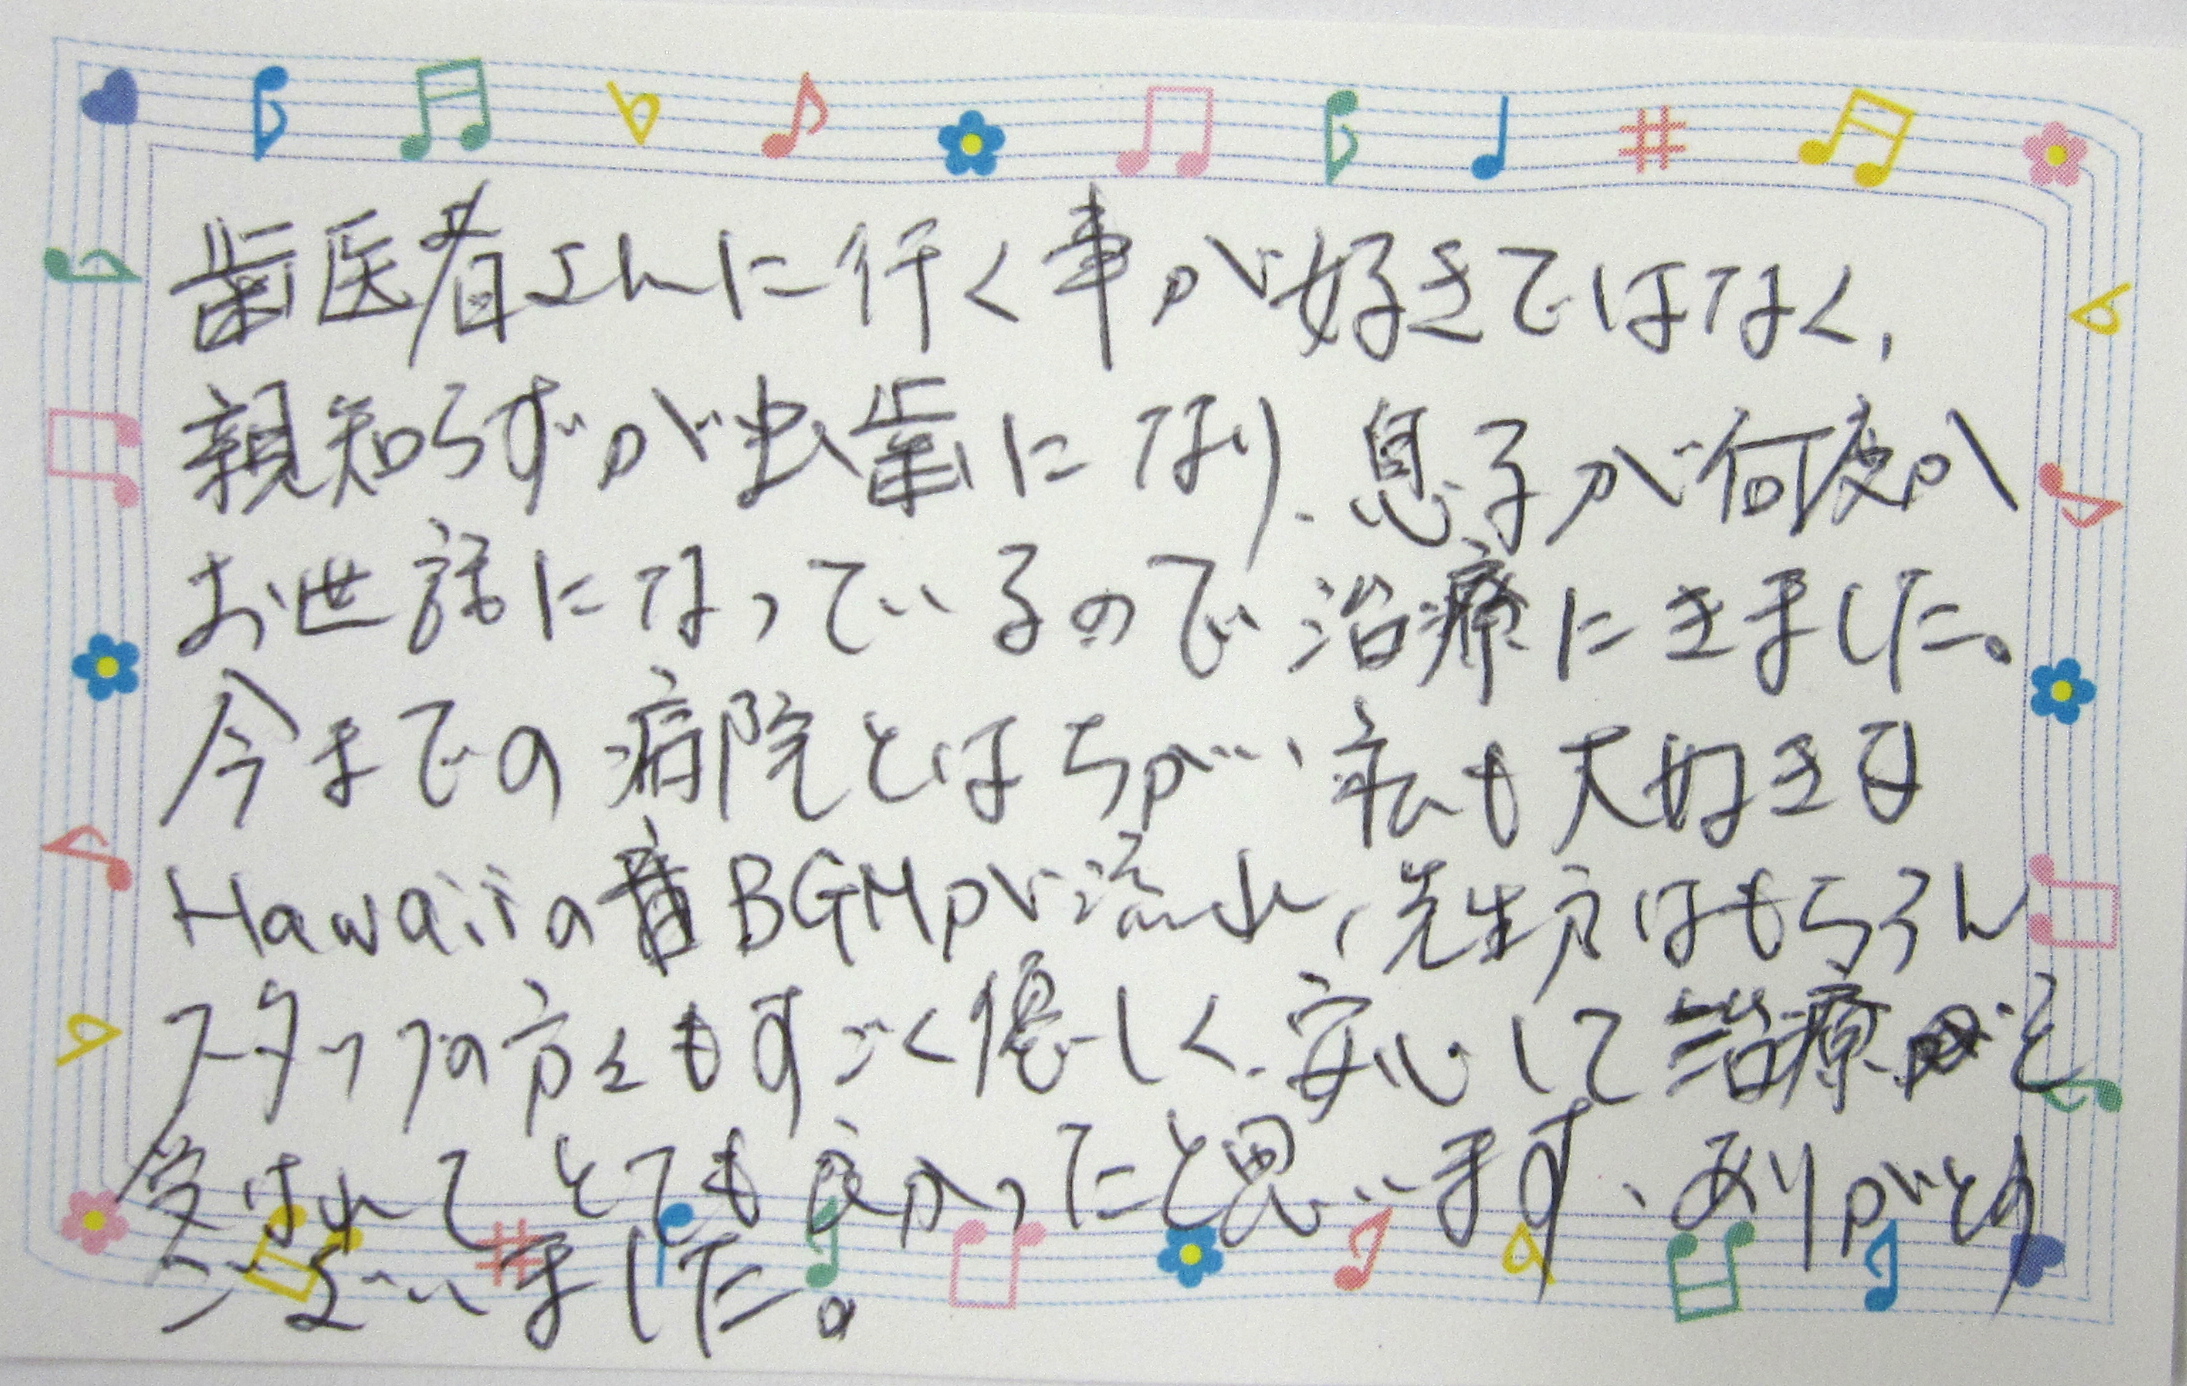 歯医者さんに行く事が好きではなく、
親知らずが虫歯になり、息子が何度か
お世話になっているので治療にきました。
今までの病院とはちがい、私も大好きな
Hawaiiの音BGMが流れ、先生方はもちろん
スタッフの方々もすごく優しく、安心して治療を
受けれて とても良かったと思います、ありがとう
ございました。